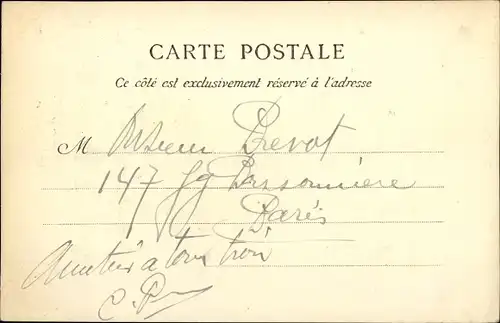 CARTE POSTALE
Ce côté est exclusivement réservé à l'adresse
M Monsieur Prevot
147 fg Poissonnière
Paris
Amitiés à tous trois
C. P